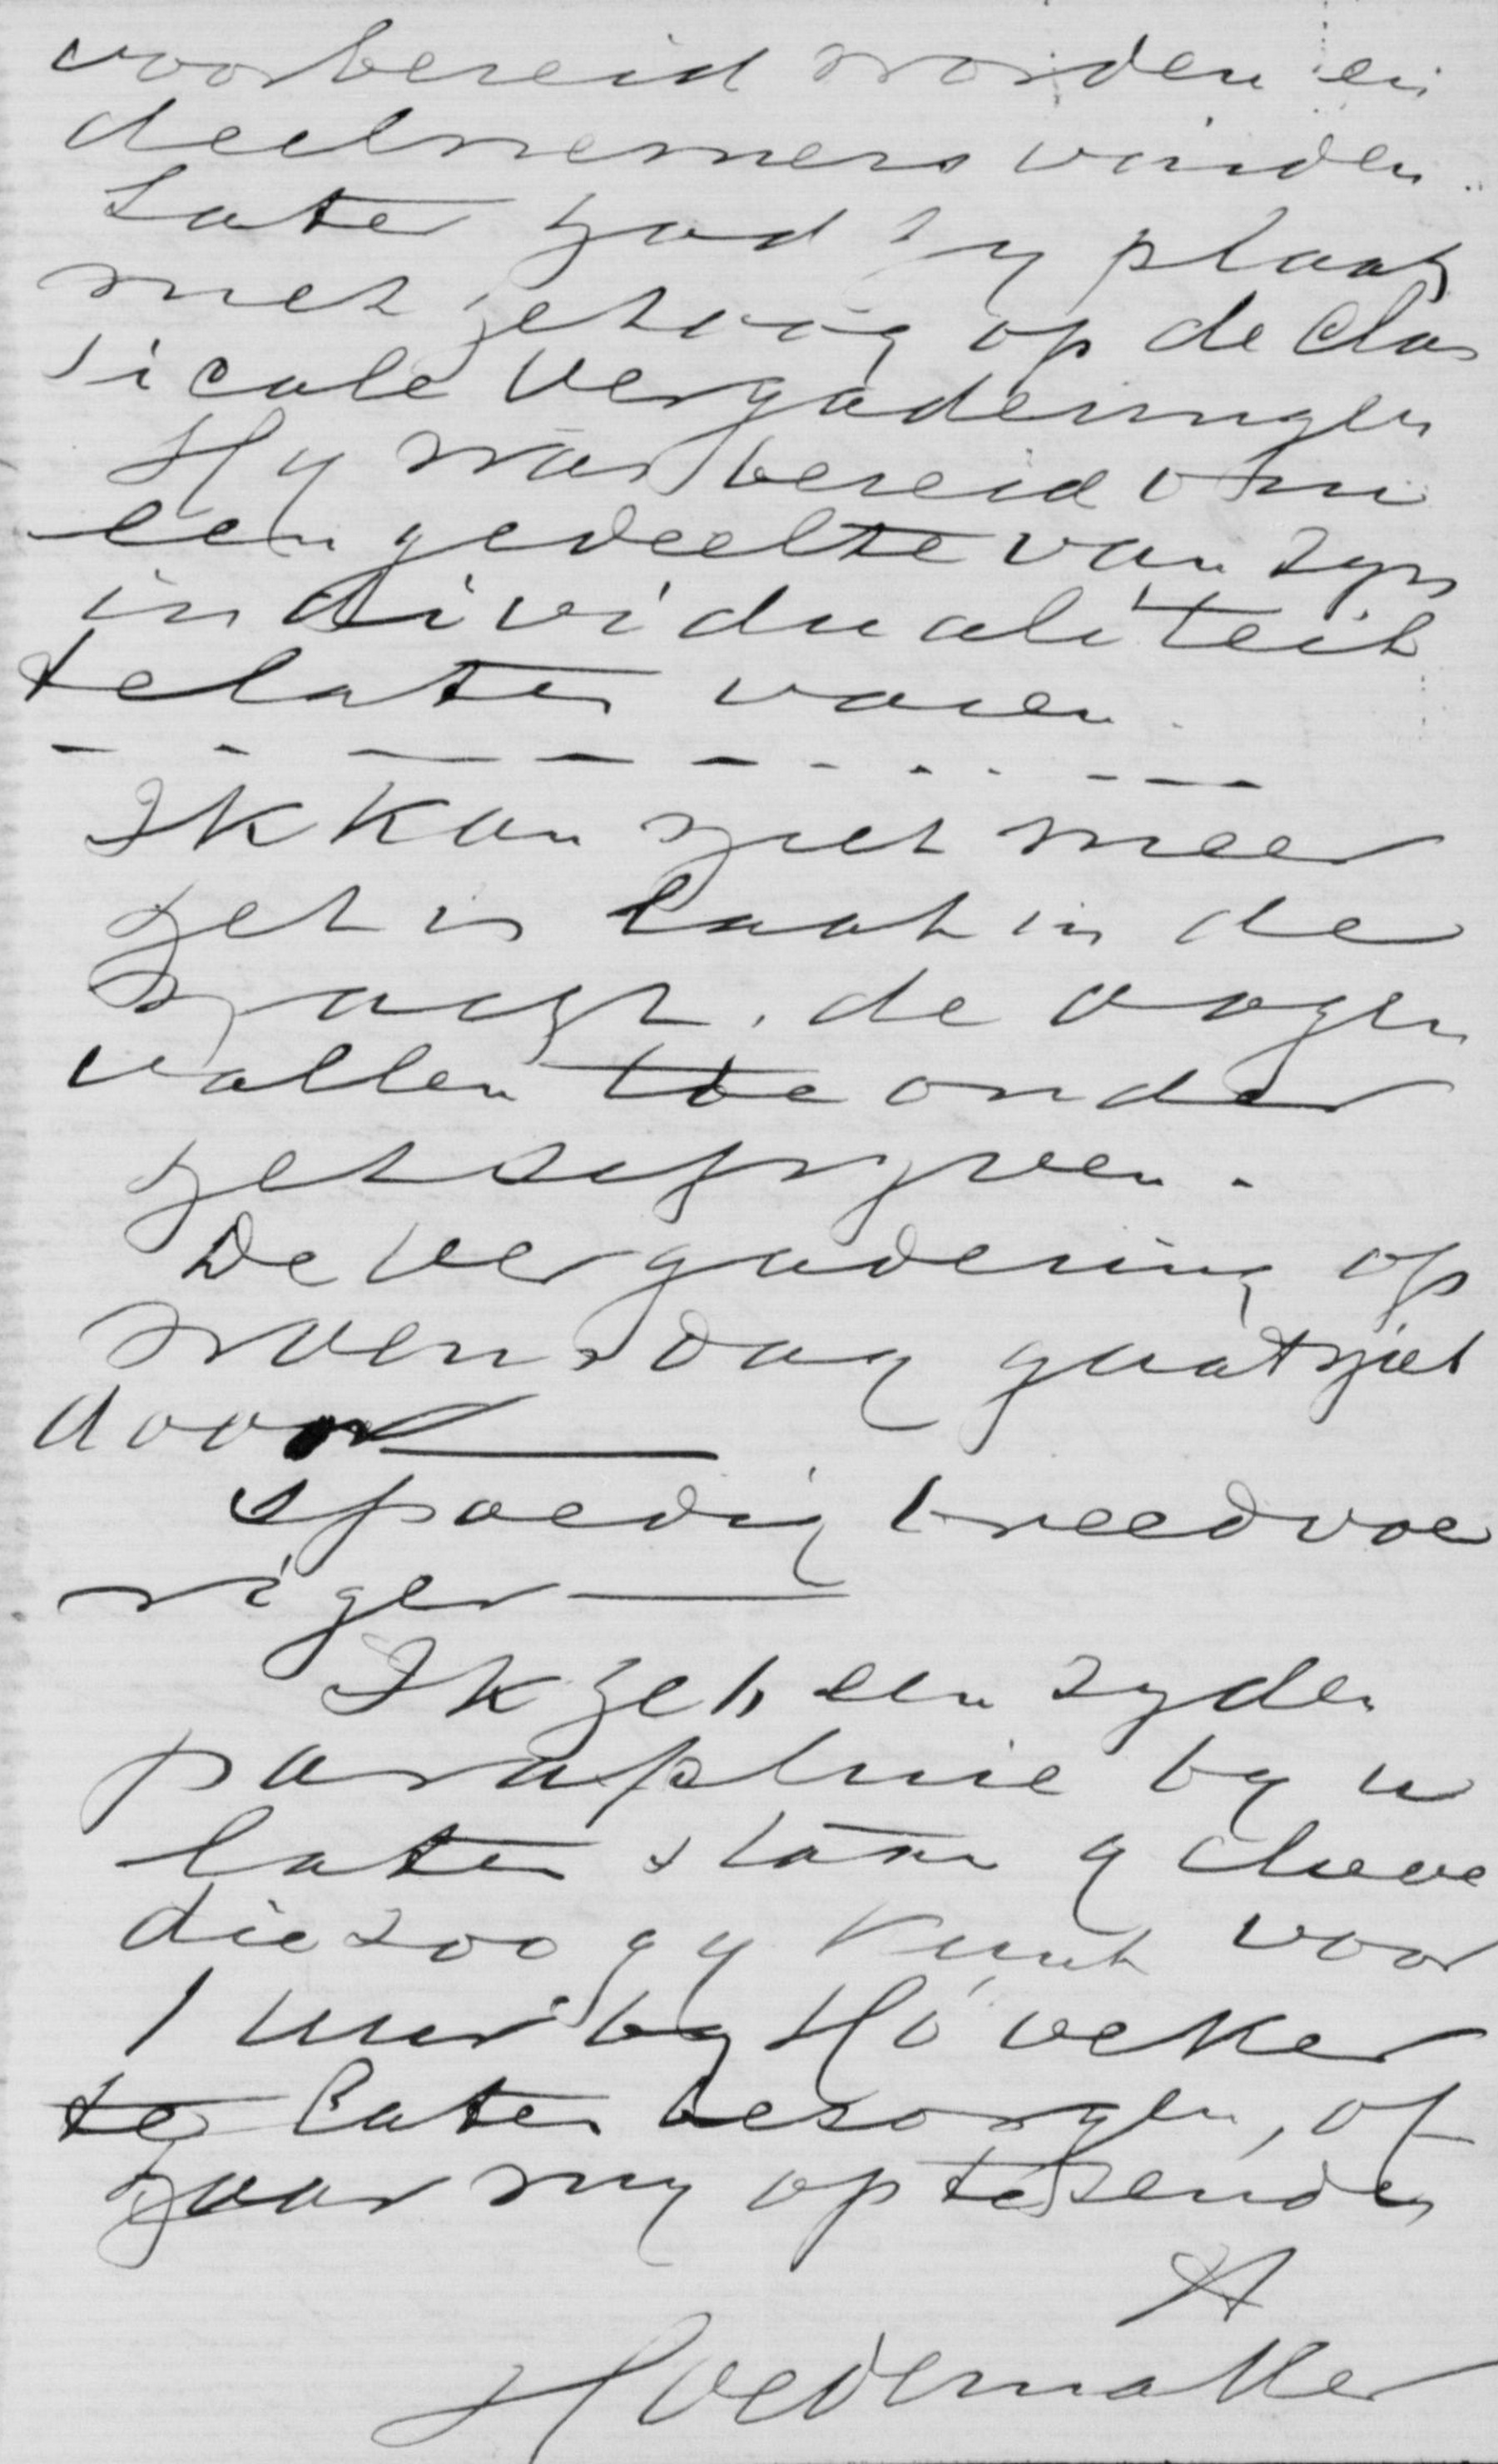 voorbereid worden en
deelnemers vinden.
Later had hy plaats
met het oog op de Clas
sicale Vergaderingen
Hy was bereid om
een gedeelte van zyn
individualiteit
te laten varen.
Ik kan niet meer
het is laat in de
nacht, de oogen
vallen toe onder
het schryven.
De vergadering op
woensdag gaat niet
door
spoedig breedvoe
riger
Ik heb een zyden
parapluie by u
laten staan gelieve
die zoo gy kunt voor
1 uur by Höveker
te laten bezorgen, of
haar my op te zenden
Hoedemaker